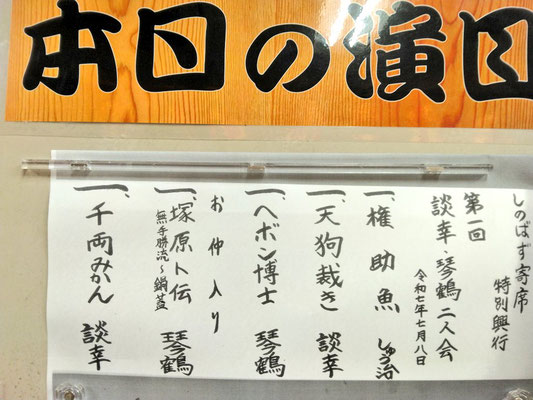 本日の演目
しのばず寄席
特別興行
第一回
談幸、琴鶴二人会
令和七年七月八日
一、権助魚 しゅう治
一、天狗裁き 談幸
一、ヘボン博士 琴鶴
お仲入り
一、塚原卜伝 琴鶴
無手勝流～鍋蓋
一、千両みかん 談幸